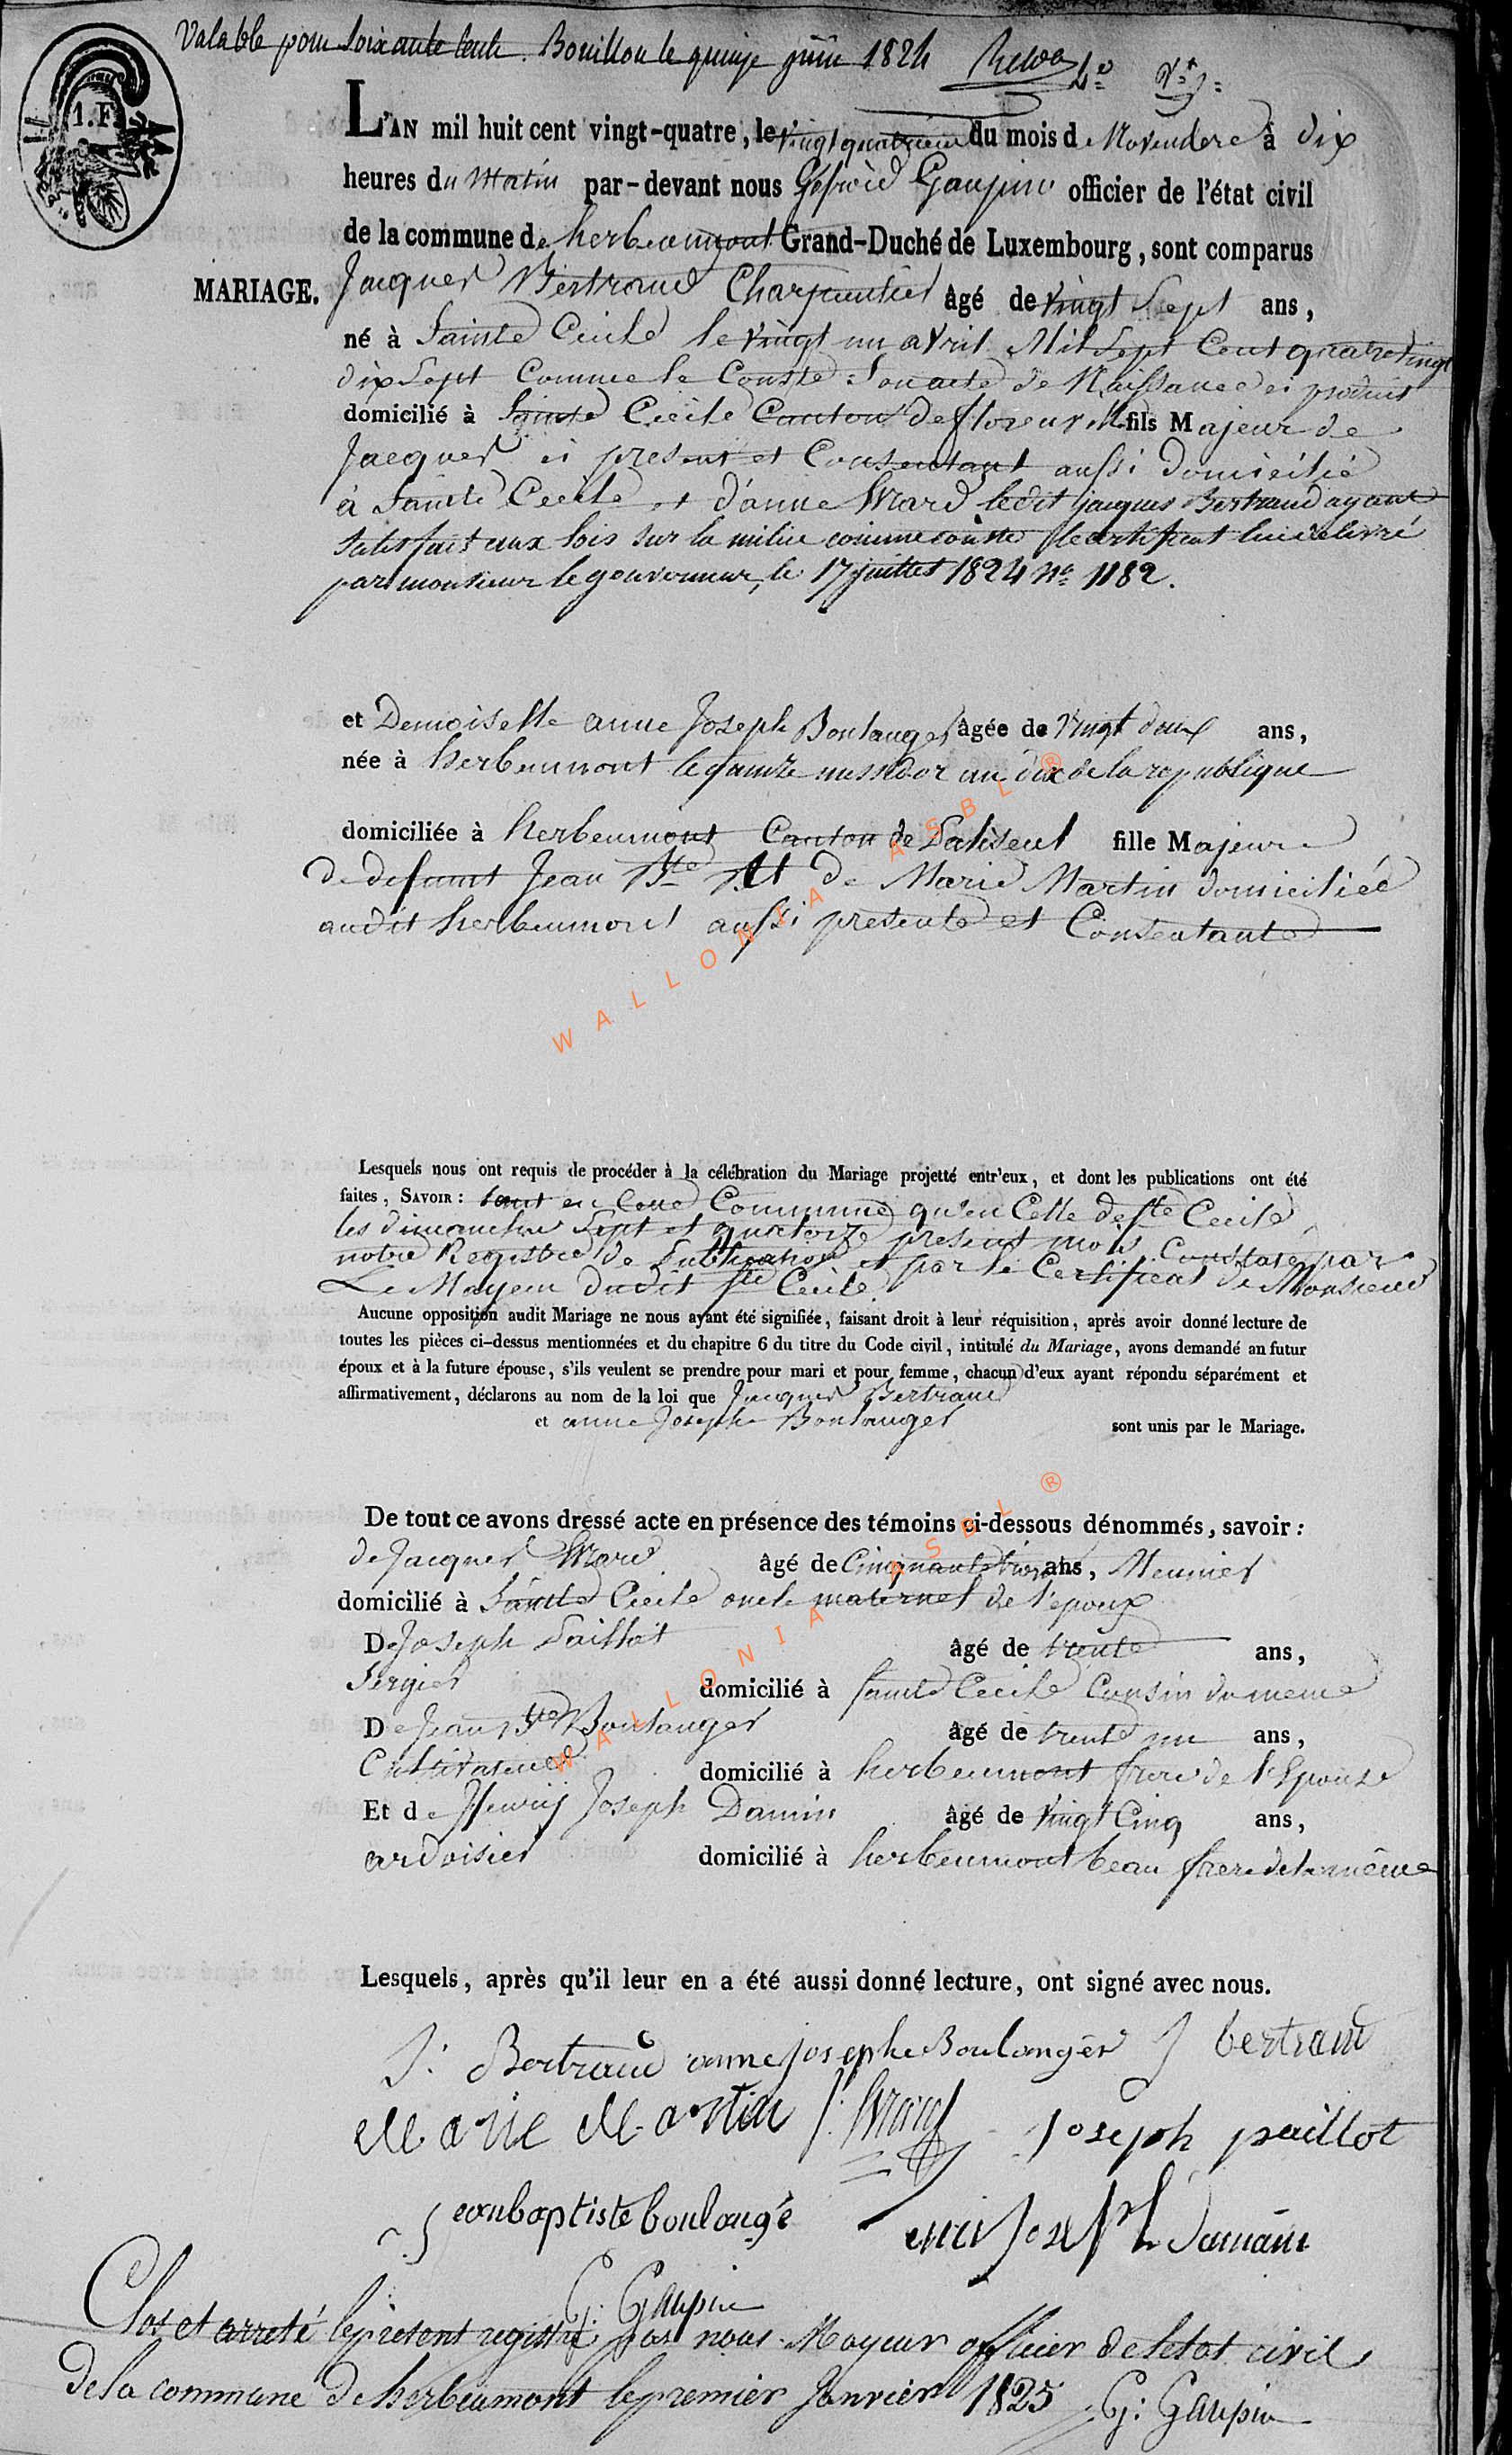 Valable pour soixante . Bouillon le quinze juin 1824
1. F.
L'AN mil huit cent vingt-quatre, le vingt quatrieme du mois de Novembre à dix
heures du Matin par-devant nous Gaupin officier de l'état civil
de la commune de herbeumont Grand-Duché de Luxembourg, sont comparus
MARIAGE.
Jacques Bertrand Charpentier âgé de vingt Sept ans,
né à Sainte Cecile le vingt un avril Mil Sept Cent quatre vingt
dix Sept Comme le Conste Son acte de Naissance ci produit
domicilié à Sainte Cecile Canton de florenville fils Majeur de
Jacques ci present et Consentant aussi domicilié
à Sainte Cecile et d'anne ledit jacques Bertrand ayant
satisfait aux lois sur la milice comme conste le certificat lui delivré
par monsieur le gouverneur, le 17 juillet 1824 No 1182.
et Demoiselle anne Joseph Boulanger âgée de vingt deux ans,
née à herbeumont le messidor an dix de la republique
domiciliée à herbeumont Canton de Paliseul fille Majeure
de defunt Jean Bte Et de Marie Martin domiciliée
audit herbeumont aussi presente et Consentante
WALLONIA ASBL ®
Lesquels nous ont requis de procéder à la célébration du Mariage projetté entr'eux, et dont les publications ont été
faites, SAVOIR : tant en Cette Commune qu'en Celle de Ste Cecile
les dimanches Sept et quatorze present mois Constaté par
notre Registre de Publication et par le Certificat de Monsieur
Le Mayeur dudit Ste Cecile.
Aucune opposition audit Mariage ne nous ayant été signifiée, faisant droit à leur réquisition, après avoir donné lecture de
toutes les pièces ci-dessus mentionnées et du chapitre 6 du titre du Code civil, intitulé du Mariage, avons demandé au futur
époux et à la future épouse, s'ils veulent se prendre pour mari et pour femme, chacun d'eux ayant répondu séparément et
affirmativement, déclarons au nom de la loi que Jacques Bertrand
et anne Josephe Boulanger sont unis par le Mariage.
De tout ce avons dressé acte en présence des témoins ci-dessous dénommés, savoir :
de Jacques âgé de Cinquante trois ans, Meunier
domicilié à Sainte Cecile oncle maternel de l'epoux
De Joseph Paillot âgé de trente ans,
Sergier domicilié à Sainte Cecile Cousin du meme
De Jean Bte Boulanger âgé de trente un ans,
Cultivateur domicilié à herbeumont frere de l'Epouse
Et de Henry Joseph Damin âgé de vingt Cinq ans,
ardoisier domicilié à herbeumont beau frere de la même
WALLONIA ASBL ®
Lesquels, après qu'il leur en a été aussi donné lecture, ont signé avec nous.
J: Bertrand anne josephe Boulanger J bertrand
Marie Martin Joseph paillot
jeanbaptiste boulangé Joseph damain
G: Gaupin
Clos et arreté le present registre par nous Mayeur officier de letat civil
de la commune de herbeumont le premier Janvier 1825 G: Gaupin